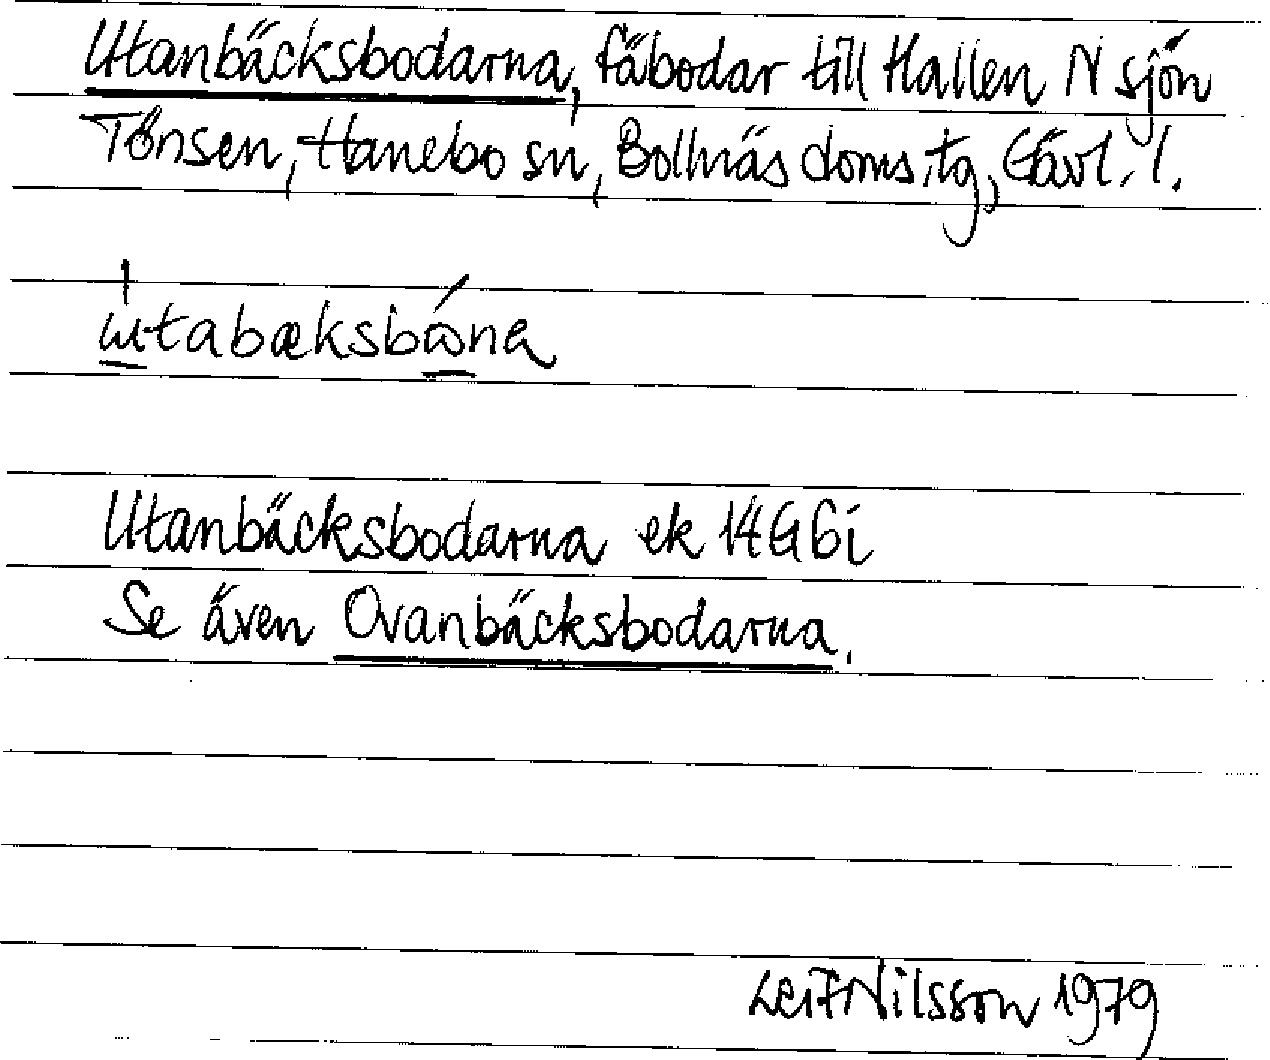 Utanbäcksbodarna, fäbodar till Hallen N sjön
Tönsen, Hanebo sn, Bollnäs doms.tg, Gävl. l.
Utanbäcksbodarna ek 14G6i
Se även Ovanbäcksbodarna.
Leif Nilsson 1979